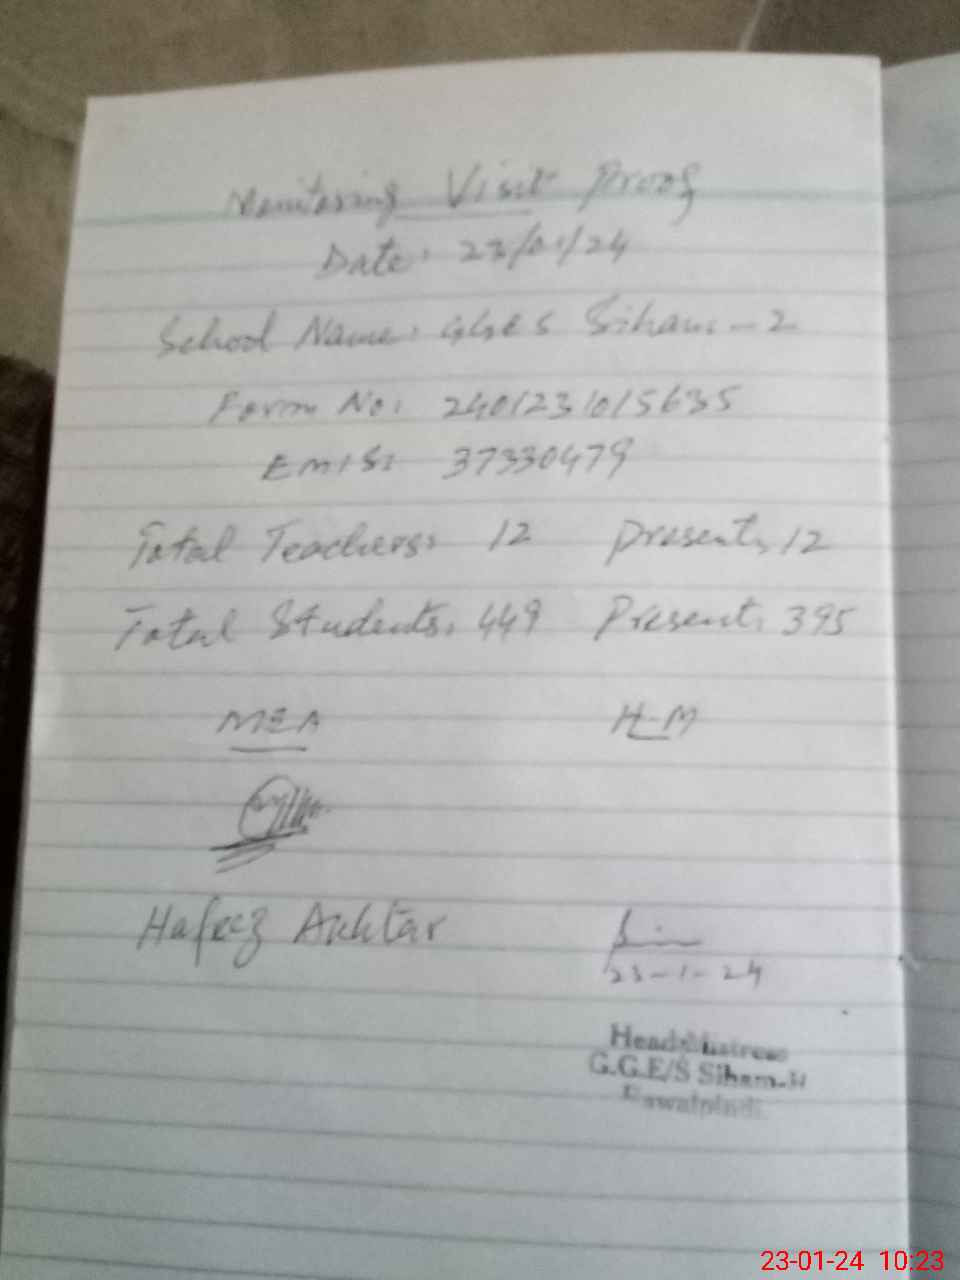 Monitoring Visit Proof
Date: 23/01/24
School Name: GGES Siham-2
Form No: 2401231015635
EMIS: 37330479
Total Teachers: 12 Present: 12
Total Students: 449 Present: 395
MEA H-M
Hafeez Akhtar
23-1-24
HeadMistress
G.G.E/S Siham-II
Rawalpindi
23-01-24 10:23